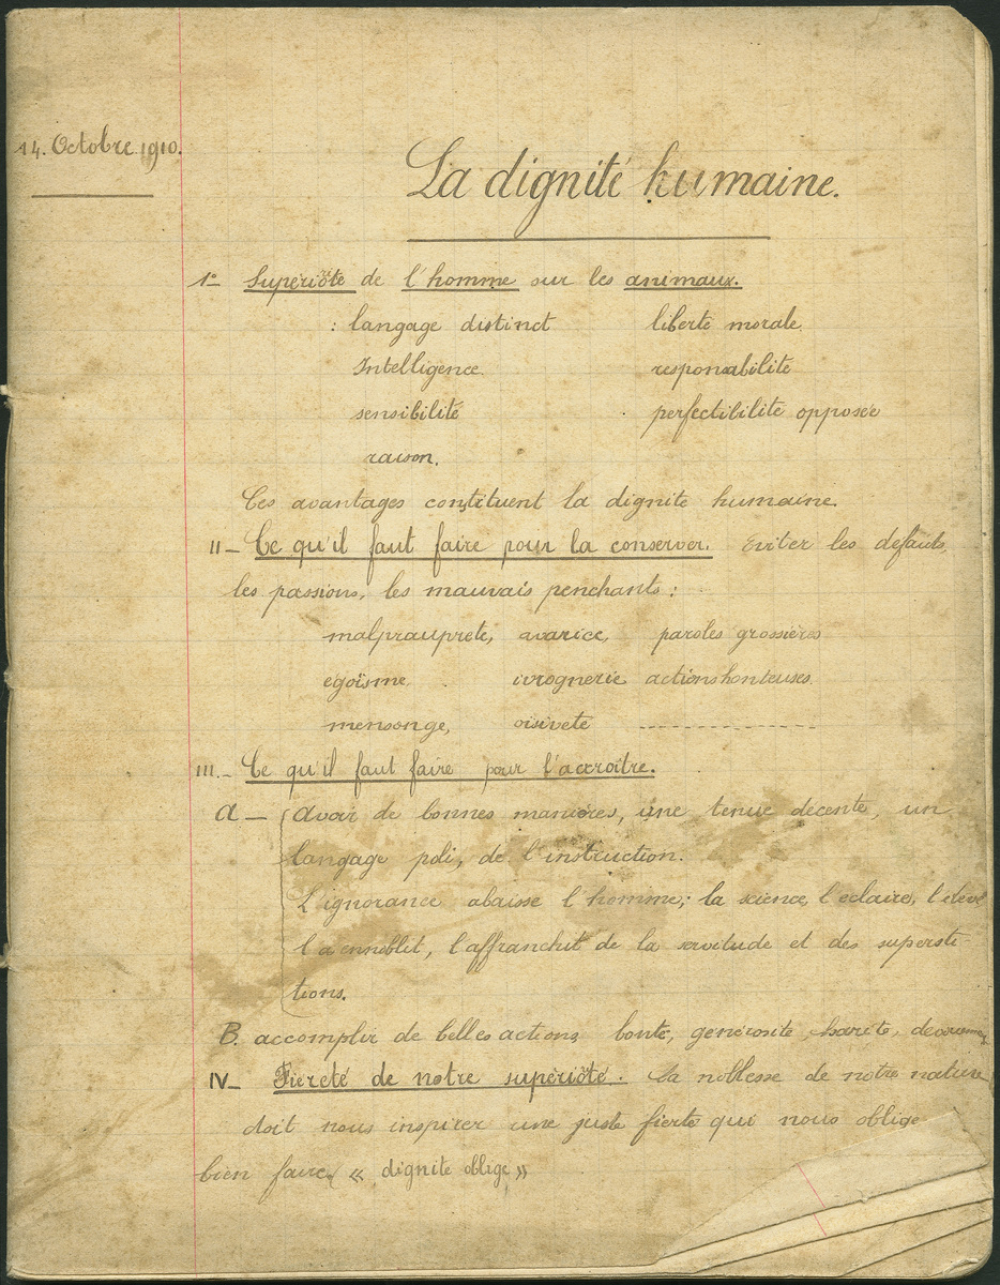 14. Octobre 1910.
La dignité humaine.
1° Supériöté de l'homme sur les animaux.
: langage distinct liberté morale,
Intelligence. responsabilité
sensibilité perfectibilité opposée
raison.
Ces avantages constituent la dignité humaine.
II_ Ce qu'il faut faire pour la conserver. Eviter les défauts,
les passions, les mauvais penchants :
malprauprete, avarice, paroles grossières
egoïsme, ivrognerie actions honteuses
mensonge, oisiveté ----------------
III._ Ce qu'il faut faire pour l'accroître.
a_ Avoir de bonnes manières, une tenue décente, un
langage poli, de l'instruction.
L'ignorance abaisse l'homme; la science, l'eclaire, l'élève
l'a ennoblit, l'affranchit de la servitude et des supersti
tions.
B. accomplir de belles actions bonté, générosité,
IV_ Fiereté de notre supériöté. La noblesse de notre nature
doit nous inspirer une juste fierté qui nous oblige
bien faire, « dignité oblige »